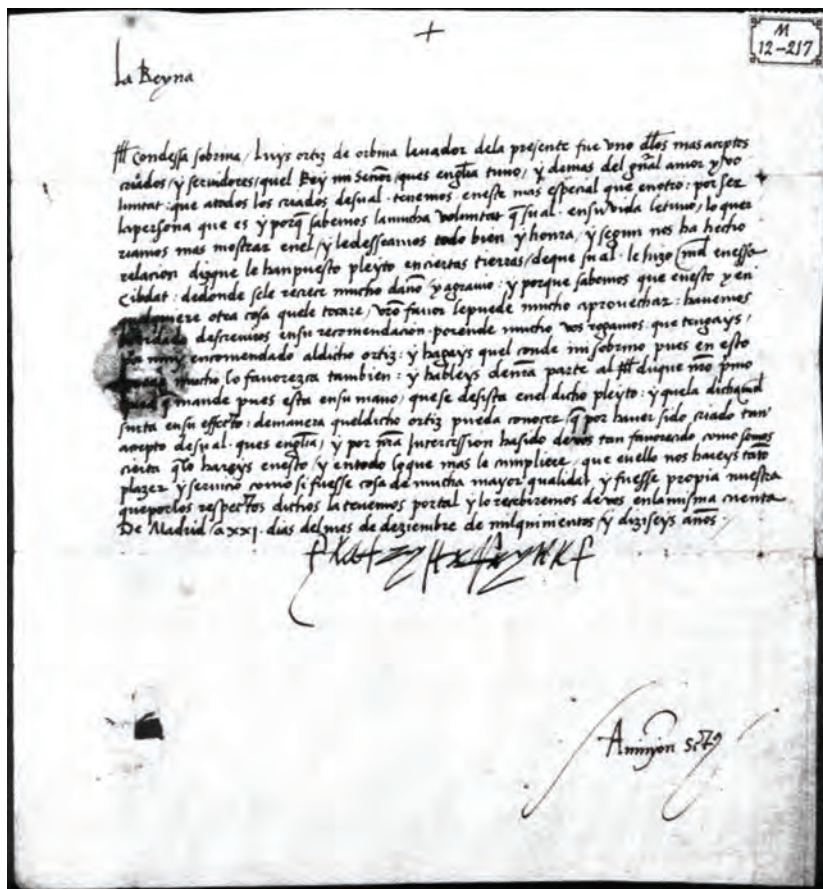 +
M
12-217
La Reyna
Ill Condessa sobrina / Luys ortiz de orbina leuador dela presente fue vno dlos mas aceptos
criados / y seruidores / quel Rey mi señor / ques englia tuuo / y demas del gñal amor y vo
luntat : que atodos los criados desual . tenemos / eneste mas especial que enotro : por ser
lapersona que es y porq̃ sabemos lamucha voluntat q̃ sual . ensu vida letuuo / lo quer
riamos mas mostrar enel / y ledesseamos todo bien y honra / y segun nos ha hecho
relacion dizque le hanpuesto pleyto enciertas tierras / deque sual . le hizo md enessa
Cibdat : dedonde sele recrece mucho daño / y agrauio : y porque sabemos que enesto y en
otra cosa quele tocare / vr̃o fauor lepuede mucho aprouechar : hauemos
descreuiros ensu recomendacion . porende mucho vos rogamos . que tengays /
muy encomendado aldicho ortiz : y hagays quel conde mi sobrino pues en esto
mucho lo fauorezca tambien : y hableys denr̃a parte al Ill duque nr̃o pmo
q̃ mande pues esta ensu mano / que se desista enel dicho pleyto : y quela dicha md
surta en su effecto : demanera queldicho ortiz pueda conocer q̃ por hauer sido criado tan
acepto desual . ques englia / y por nr̃a Intercession hasido devos tan fauorecido como somos
cierta q̃ lo hareys enesto / y entodo loque mas le cumpliere / que enello nos hareys tãto
plazer y seruicio como si fuesse cosa de mucha mayor qualidat y fuesse propia nuestra
queporlos respectos dichos la tenemos portal y lo recebiremos devos enlamisma cuenta
De Madrid / a xxi . dias del mes de deziembre de milquinientos / y diziseys años .